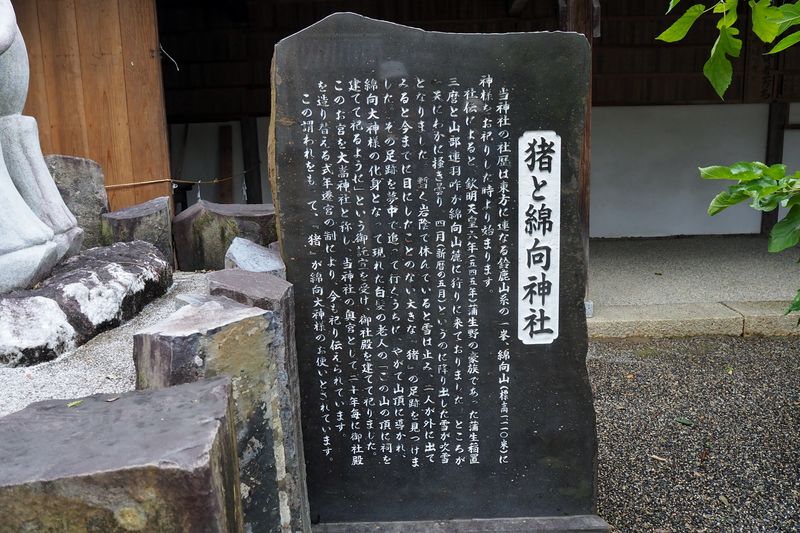 猪と綿向神社
当神社の社歴は東方に連なる鈴鹿山系の一峯、綿向山(標高一一一〇米)に
神様をお祀りした時より始まります。
社伝によると、欽明天皇六年(五四五年)蒲生野の豪族であった蒲生稲置
三麿と山部連羽咋が綿向山麓に狩りに来ておりました。ところが
一天にわかに掻き曇り、四月(新暦の五月)というのに降り出した雪が吹雪
となりました。暫く岩陰で休んでいると雪は止み、二人が外に出て
みると今までに目にしたことのない大きな「猪」の足跡を見つけま
した。その足跡を夢中で追って行くうちに、やがて山頂に導かれ、
綿向大神様の化身となって現れた白髪の老人の「この山の頂に祠を
建てて祀るように」という御託宣を受け、御社殿を建てて祀りました。
このお宮を大嵩神社と称し、当神社の奥宮として、二十年毎に御社殿
を造り替える式年遷宮の制により、今も祀り伝えられています。
この謂われをもって、「猪」が綿向大神様のお使いとされています。